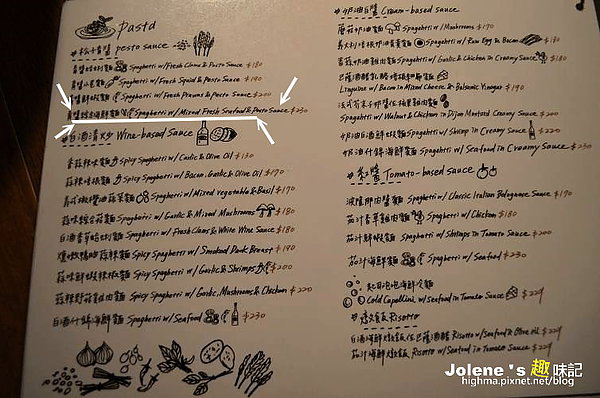 Pasta
松子青醬 pesto sauce
Spaghetti w/Fresh Clams & Pesto Sauce $180
Spaghetti w/Fresh Squid & Pesto Sauce $190
Spaghetti w/Fresh Prawns & Pesto Sauce $200
Spaghetti w/Mixed Fresh Seafood & Pesto Sauce $230
白酒清炒 Wine-based Sauce
蒜辣辣味麵 Spicy Spaghetti w/ Garlic & Olive Oil $130
蒜辣培根麵 Spicy Spaghetti w/ Bacon, Garlic & Olive Oil $170
Spaghetti w/ Mixed Vegetable & Basil $170
Spaghetti w/ Garlic & Mixed Mushrooms $180
白酒香草蛤蜊麵 Spaghetti w/ Fresh Clams & White Wine Sauce $180
Spicy Spaghetti w/ Smoked Duck Breast $190
Spicy Spaghetti w/ Garlic & Shrimps $200
Spaghetti w/ Garlic, Mushrooms & Chicken $220
白酒什錦海鮮麵 Spaghetti w/Seafood $230
奶油白醬 Cream-based Sauce
蘑菇奶油麵 Spaghetti w/Mushrooms $170
Spaghetti w/ Raw Egg & Bacon $180
Spaghetti w/ Garlic & Chicken in Creamy Sauce $190
Linguine w/ Bacon in Mixed Cheese & Balsamic Vinegar $190
Spaghetti w/ Walnut & Chicken in Dijon Mustard Creamy $200
Spaghetti w/ Shrimp in Creamy Sauce $220
奶油什錦海鮮麵 Spaghetti w/ Seafood in Creamy Sauce $230
紅醬 Tomato-based sauce
波隆那肉醬麵 Spaghetti w/ Classic Italian Bolognase Sauce $170
茄汁香草雞肉麵 Spaghetti w/ Chicken $180
茄汁鮮蝦麵 Spaghetti w/ Shrimps in Tomato Sauce $200
茄汁海鮮麵 Spaghetti w/ Seafood $230
Cold Capellini w/Seafood in Tomato Sauce $229
燉飯 Risotto
Risotto w/ Seafood & Olive oil $229
茄汁海鮮燉飯 Risotto w/ Seafood in Tomato Sauce $229
Jolene's 趣味記
highma.pixnet.net/blog